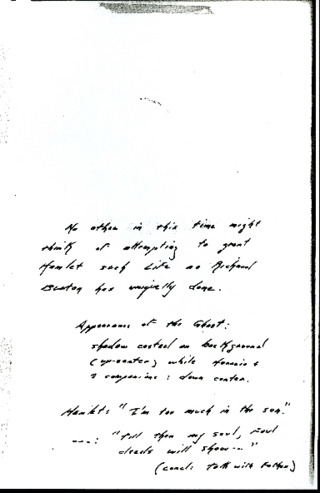 No other in this time might
think of attempting to grant
Hamlet such Life as Richard
Burton has uniquely done.
Appearance of the Ghost:
shadow casted on background
(up-center) while Horatio &
2 companions: down center.
Hamlet: "I'm too much in the sun."
---: "Till then my soul, foul
deeds will show--"
(concl: talk with Father)